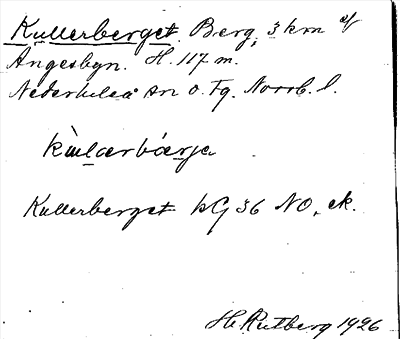 Kullerberget. Berg, 3 km v/
Ängesbyn. H. 117 m.
Nederluleå sn o. Tg. Norrb. l.
kùlarbärja
Kullerberget kG 36 NO, ek.
H. Rutberg 1926